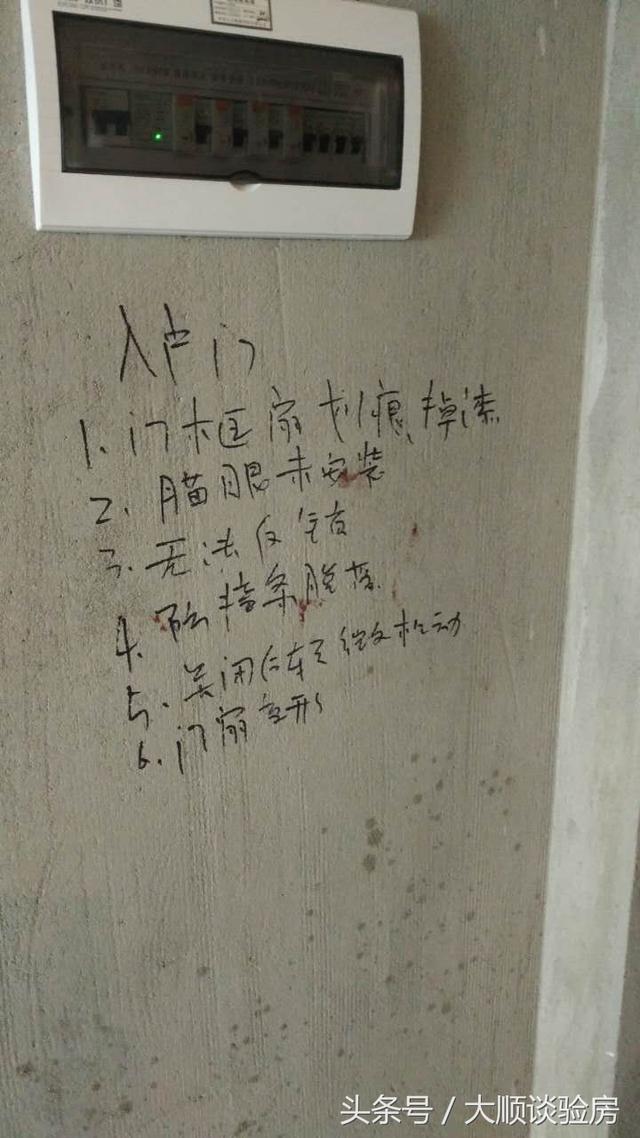 入户门
1. 门框扇划痕、掉漆
2. 猫眼未安装
3. 无法反锁
4. 防撞条脱落
5. 关闭后轻微松动
6. 门扇变形
头条号 / 大顺谈验房